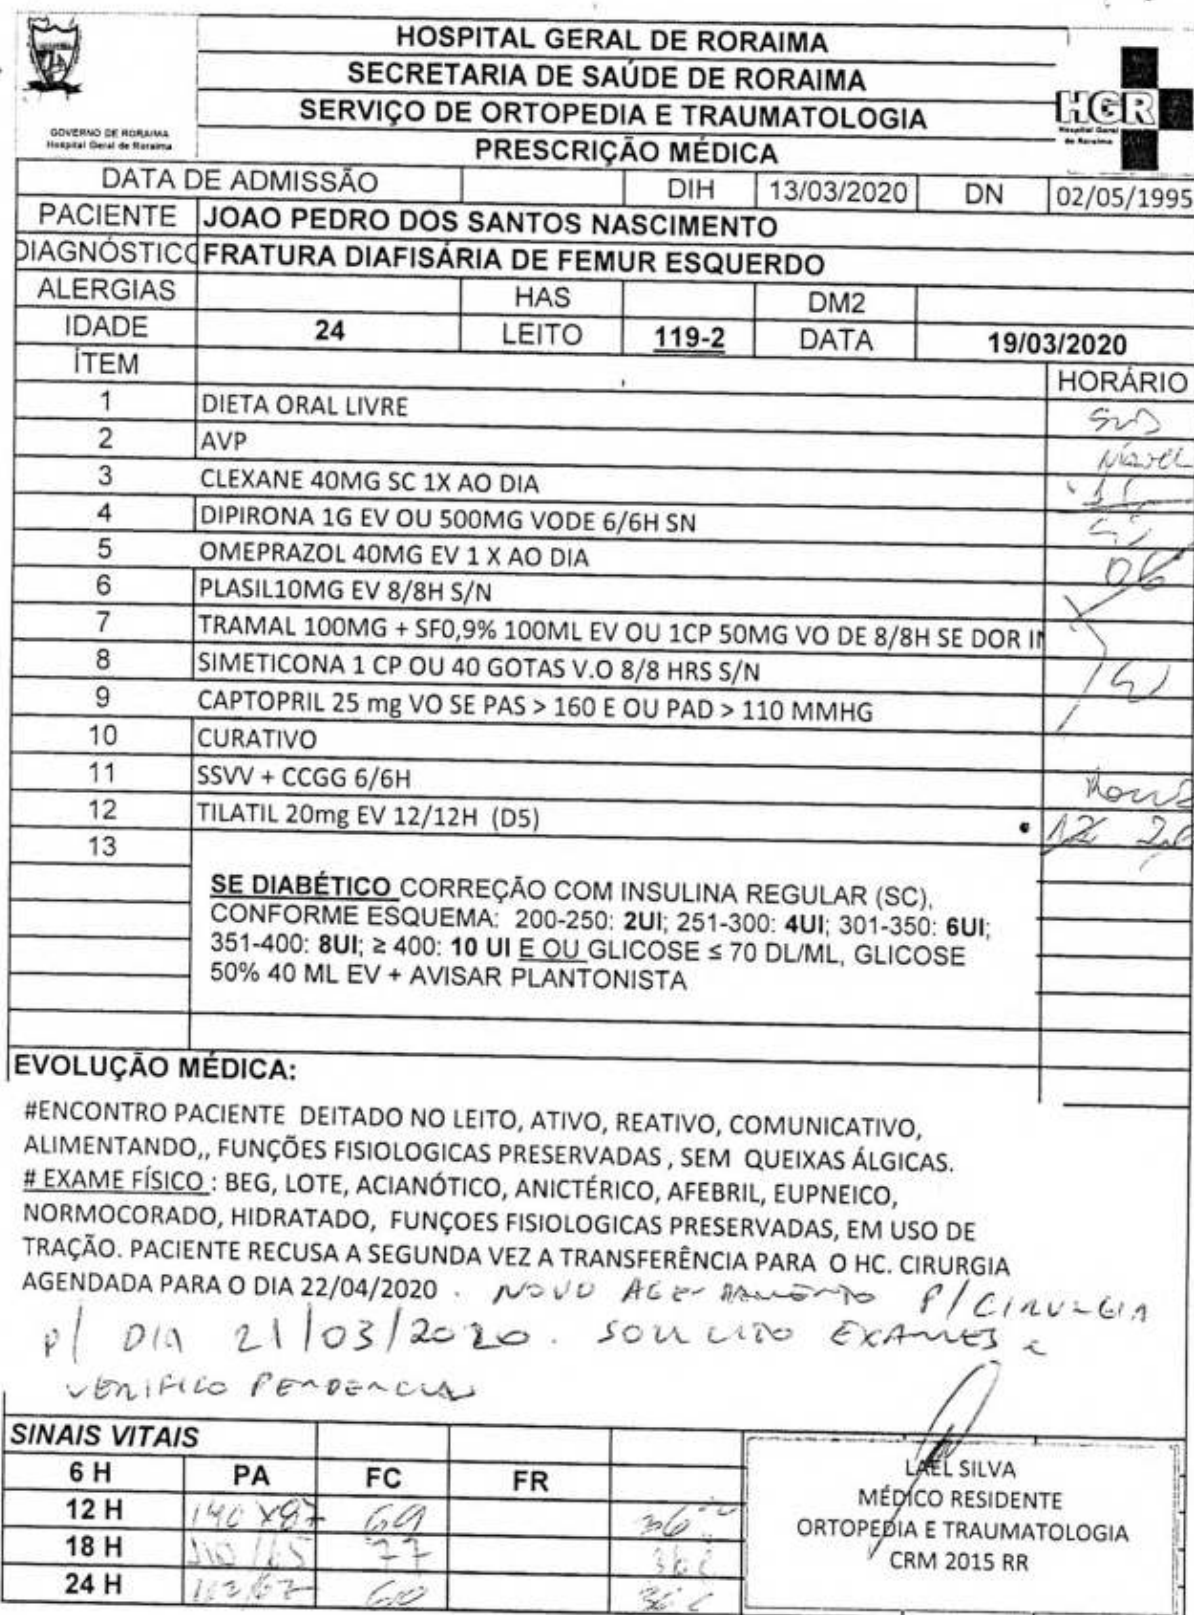 HOSPITAL GERAL DE RORAIMA
SECRETARIA DE SAÚDE DE RORAIMA
SERVIÇO DE ORTOPEDIA E TRAUMATOLOGIA
PRESCRIÇÃO MÉDICA
GOVERNO DE RORAIMA
Hospital Geral de Roraima
HGR
Hospital Geral
de Roraima
DATA DE ADMISSÃO DIH 13/03/2020 DN 02/05/1995
PACIENTE JOAO PEDRO DOS SANTOS NASCIMENTO
DIAGNÓSTICO FRATURA DIAFISÁRIA DE FEMUR ESQUERDO
ALERGIAS HAS DM2
IDADE 24 LEITO 119-2 DATA 19/03/2020
ÍTEM HORÁRIO
1 DIETA ORAL LIVRE SND
2 AVP
3 CLEXANE 40MG SC 1X AO DIA
4 DIPIRONA 1G EV OU 500MG VODE 6/6H SN
5 OMEPRAZOL 40MG EV 1 X AO DIA 06
6 PLASIL10MG EV 8/8H S/N
7 TRAMAL 100MG + SF0,9% 100ML EV OU 1CP 50MG VO DE 8/8H SE DOR IN
8 SIMETICONA 1 CP OU 40 GOTAS V.O 8/8 HRS S/N
9 CAPTOPRIL 25 mg VO SE PAS > 160 E OU PAD > 110 MMHG
10 CURATIVO
11 SSVV + CCGG 6/6H
12 TILATIL 20mg EV 12/12H (D5)
13
SE DIABÉTICO CORREÇÃO COM INSULINA REGULAR (SC),
CONFORME ESQUEMA: 200-250: 2UI; 251-300: 4UI; 301-350: 6UI;
351-400: 8UI; ≥ 400: 10 UI E OU GLICOSE ≤ 70 DL/ML, GLICOSE
50% 40 ML EV + AVISAR PLANTONISTA
EVOLUÇÃO MÉDICA:
#ENCONTRO PACIENTE DEITADO NO LEITO, ATIVO, REATIVO, COMUNICATIVO,
ALIMENTANDO,, FUNÇÕES FISIOLOGICAS PRESERVADAS , SEM QUEIXAS ÁLGICAS.
# EXAME FÍSICO : BEG, LOTE, ACIANÓTICO, ANICTÉRICO, AFEBRIL, EUPNEICO,
NORMOCORADO, HIDRATADO, FUNÇOES FISIOLOGICAS PRESERVADAS, EM USO DE
TRAÇÃO. PACIENTE RECUSA A SEGUNDA VEZ A TRANSFERÊNCIA PARA O HC. CIRURGIA
AGENDADA PARA O DIA 22/04/2020 . NOVO AGENDAMENTO P/ CIRURGIA
p/ DIA 21/03/2020. SOLICITO EXAMES e
VERIFICO PENDENCIAS
SINAIS VITAIS
6 H PA FC FR
12 H 140 X 87 69
18 H 110/65 77
24 H 60
LAEL SILVA
MÉDICO RESIDENTE
ORTOPEDIA E TRAUMATOLOGIA
CRM 2015 RR